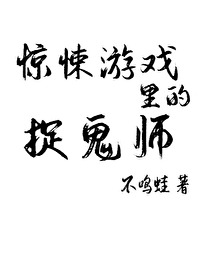 惊悚游戏
里的
捉鬼师
不鸣蛙 著